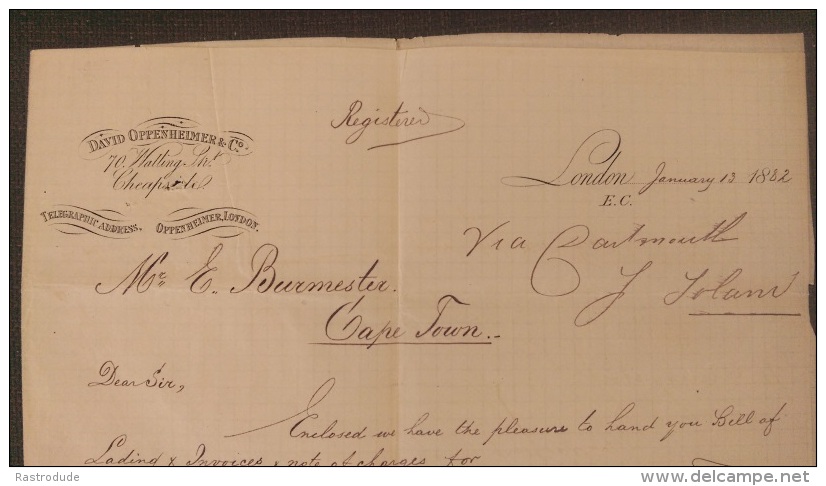 Registered
DAVID OPPENHEIMER & Co.
70, Watling St.
Cheapside
TELEGRAPHIC ADDRESS. OPPENHEIMER, LONDON.
London January 13 1882
E.C.
Via Dartmouth
Mr. E. Burmester.
Cape Town.
Dear Sir,
Enclosed we have the pleasure to hand you Bill of
Lading & Invoices & note of charges for
Rastrodude
delcampe.net